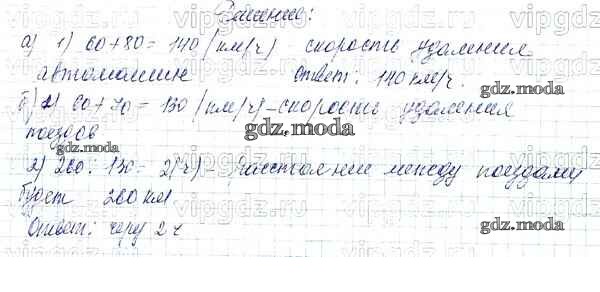 Решение:
а) 1) 60+80= 140 (км/ч) - скорость удаления
автомашин Ответ: 140 км/ч.
б) 1) 60+70= 130 (км/ч) - скорость удаления
поездов
2) 260:130= 2(ч) - расстояние между поездами
будет 260 км.
Ответ: через 2 ч
gdz.moda
gdz.moda
gdz.moda
gdz.moda
gdz.moda